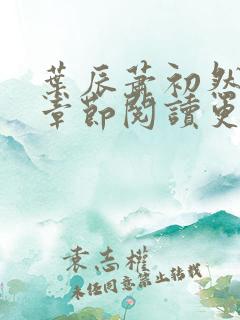 葉辰蕭初然
章節閱讀更
袁志權
未任同意禁止转载